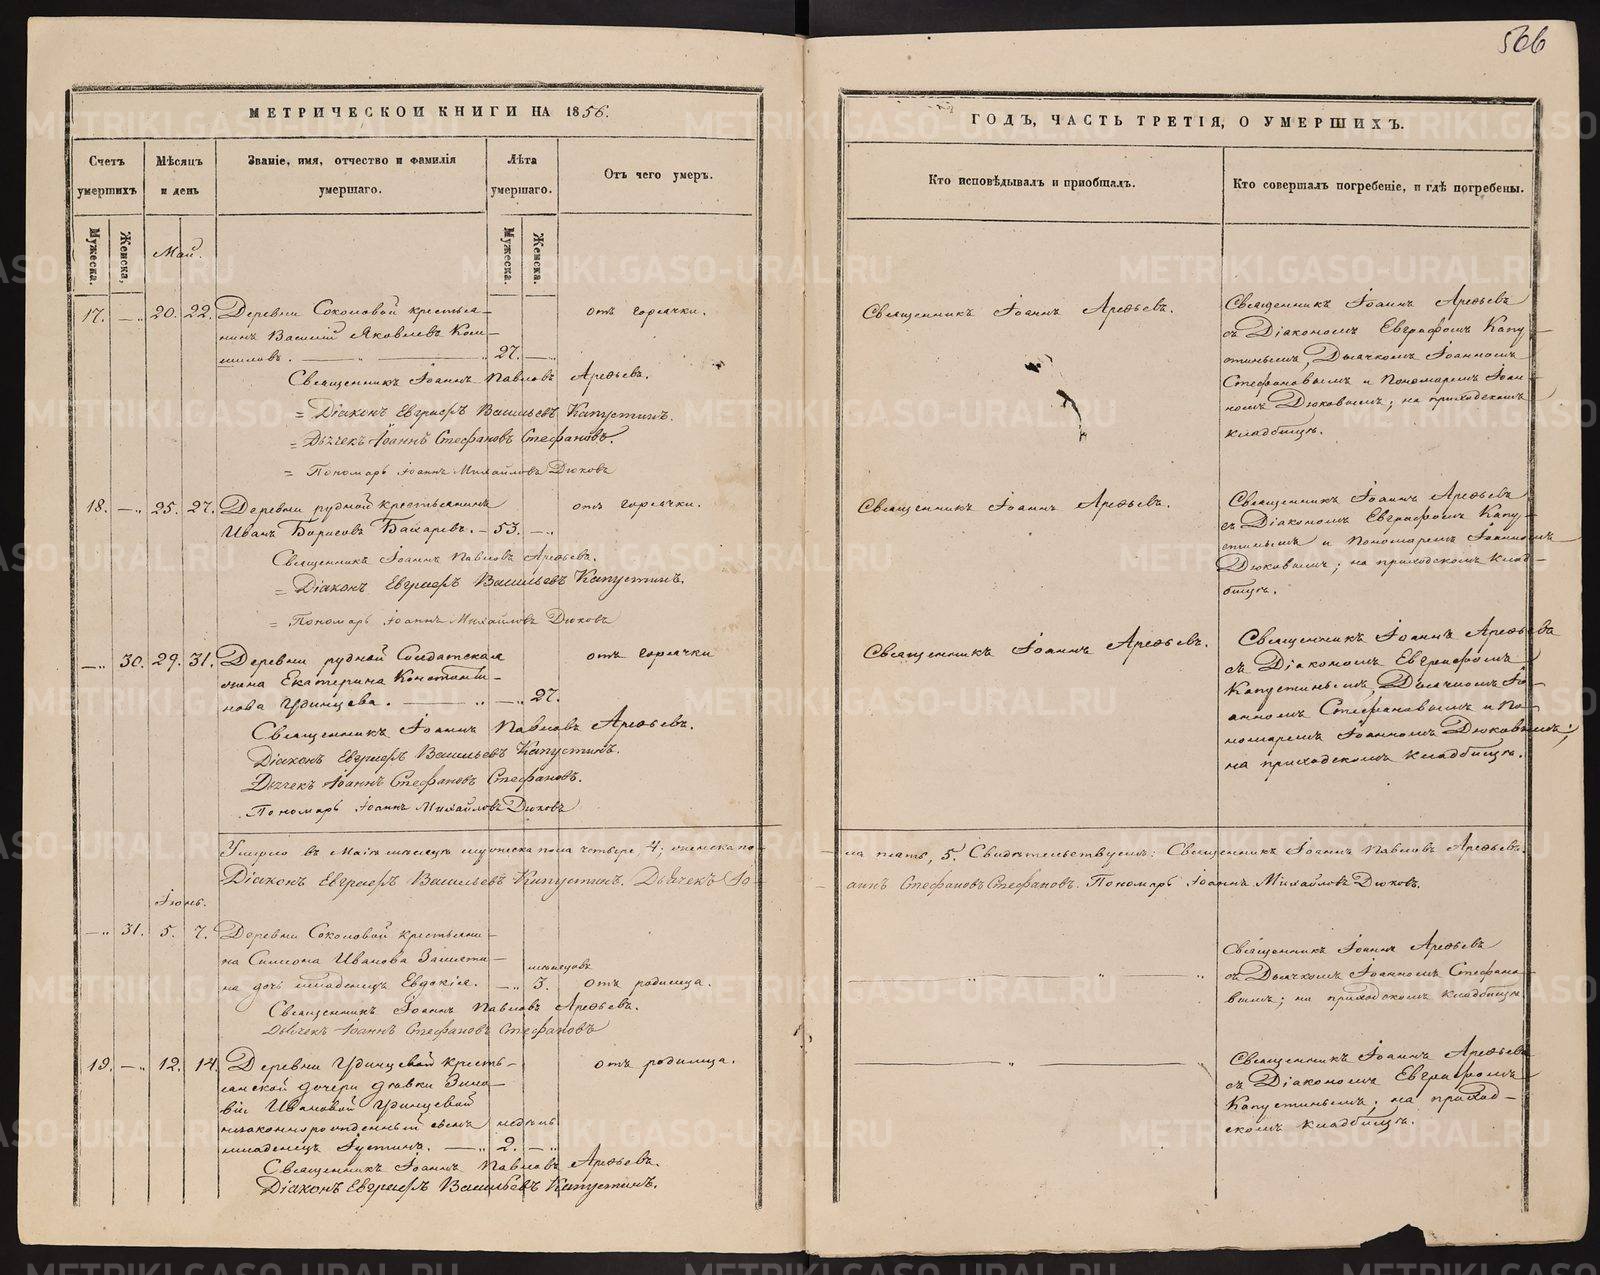 566
МЕТРИЧЕСКОЙ КНИГИ НА 1856.
ГОДЪ, ЧАСТЬ ТРЕТІЯ, О УМЕРШИХЪ.
Счетъ умершихъ
Мѣсяцъ и день
Званіе, имя, отчество и фамилія умершаго.
Лѣта умершаго.
Отъ чего умеръ.
Кто исповѣдывалъ и пріобщалъ.
Кто совершалъ погребеніе, и гдѣ погребены.
Мужеска.
Женска.
Май.
Мужеска.
Женска.
17. — „ 20. 22. Деревни Соколовой крестья-
нинъ Василій Яковлевъ Кош-
миловъ. — „ 27. —
отъ горячки.
Священникъ Іоаннъ Павловъ Арефьевъ.
= Діаконъ Евграфъ Васильевъ Капустинъ.
= Дьячекъ Іоаннъ Стефановъ Стефановъ.
= Пономарь Іоаннъ Михайловъ Дюковъ
Священникъ Іоаннъ Арефьевъ.
Священникъ Іоаннъ Арефьевъ
съ Діакономъ Евграфомъ Капу-
стинымъ, Дьячкомъ Іоанномъ
Стефановымъ и Пономаремъ Іоан-
номъ Дюковымъ; на приходскомъ
кладбищѣ.
18. — „ 25. 27. Деревни рудной крестьянинъ
Иванъ Борисовъ Бахаревъ. — 53. — „
отъ горячки.
Священникъ Іоаннъ Павловъ Арефьевъ.
= Діаконъ Евграфъ Васильевъ Капустинъ.
= Пономарь Іоаннъ Михайловъ Дюковъ
Священникъ Іоаннъ Арефьевъ.
Священникъ Іоаннъ Арефьевъ
съ Діакономъ Евграфомъ Капу-
стинымъ и Пономаремъ Іоанномъ
Дюковымъ; на приходскомъ клад-
бищѣ.
— „ 30. 29. 31. Деревни рудной Солдатская
жена Екатерина Константи-
нова Удинцева. — „ — „ 27.
отъ горячки
Священникъ Іоаннъ Павловъ Арефьевъ.
Діаконъ Евграфъ Васильевъ Капустинъ.
Дьячекъ Іоаннъ Стефановъ Стефановъ.
Пономарь Іоаннъ Михайловъ Дюковъ
Священникъ Іоаннъ Арефьевъ.
Священникъ Іоаннъ Арефьевъ
съ Діакономъ Евграфомъ
Капустинымъ, Дьячкомъ Іо-
анномъ Стефановымъ и По-
номаремъ Іоанномъ Дюковымъ;
на приходскомъ кладбищѣ.
Умерло въ Маіѣ мѣсяцѣ мужеска пола четверо, 4; женска по-
ла пять, 5. Свидѣтельствуемъ: Священникъ Іоаннъ Павловъ Арефьевъ.
Діаконъ Евграфъ Васильевъ Капустинъ. Дьячекъ Іо-
аннъ Стефановъ Стефановъ. Пономарь Іоаннъ Михайловъ Дюковъ.
Іюнь.
— „ 31. 5. 7. Деревни Соколовой крестьяни-
на Симеона Иванова
на дочь младенецъ Евдокія. — „ мѣсяцовъ 3.
отъ родимца.
Священникъ Іоаннъ Павловъ Арефьевъ.
Дьячекъ Іоаннъ Стефановъ Стефановъ
Священникъ Іоаннъ Арефьевъ
съ Дьячкомъ Іоанномъ Стефано-
вымъ; на приходскомъ кладбищѣ
19. — „ 12. 14. Деревни Удинцевой кресть-
янской дочери дѣвки Зино-
віи Ивановой Удинцевой
незаконнорожденный сынъ недѣль
младенецъ Іустинъ. — „ 2. — „
отъ родимца.
Священникъ Іоаннъ Павловъ Арефьевъ.
Діаконъ Евграфъ Васильевъ Капустинъ.
Священникъ Іоаннъ Арефьевъ
съ Діакономъ Евграфомъ
Капустинымъ; на приход-
скомъ кладбищѣ.
METRIKI.GASO-URAL.RU